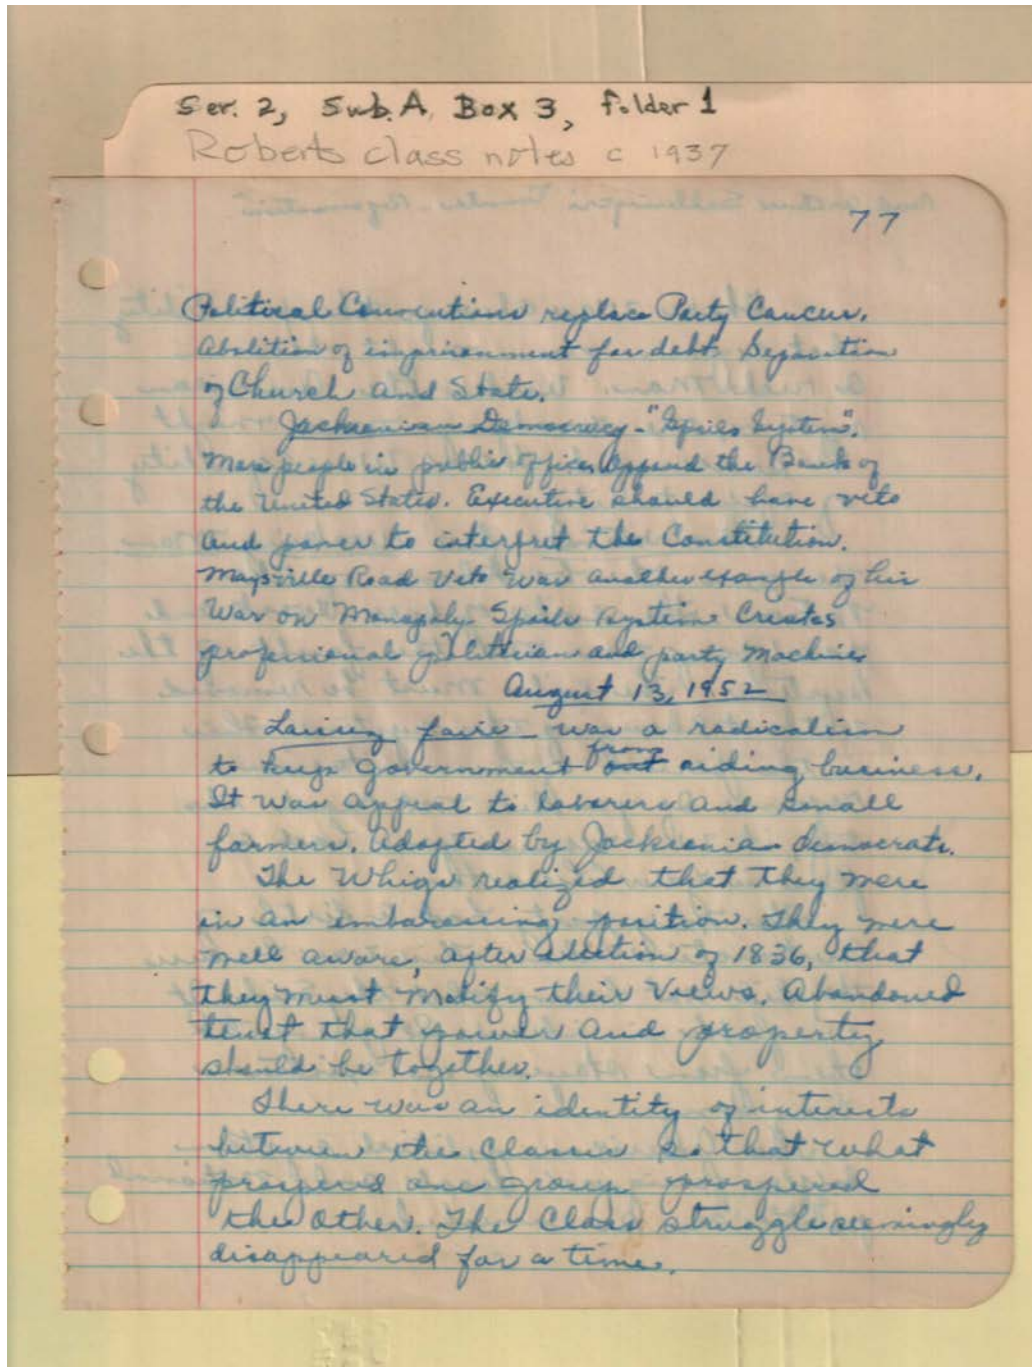 Ser. 2, Sub. A, Box 3, Folder 1
Roberts class notes c 1937
77
Political Conventions replace Party Caucus.
Abolition of imprisonment for debt. Separation
of Church and State.
Jacksonian Democracy - "Spoils System".
More people in public offices. Opposed the Bank of
the United States. Executive should have veto
and power to interpret the Constitution.
Maysville Road Veto was another example of his
War on Monopoly. Spoils System Creates
professional politician and party machines
August 13, 1952
Laissez faire - was a radicalism
to keep government from aiding business.
It was appeal to laborers and small
farmers. Adopted by Jacksonian democrats.
The Whigs realized that they were
in an embarassing position. They were
well aware, after election of 1836, that
they must modify their views. Abandoned
that power and property
should be together.
There was an identity of interests
between the classes so that what
prospered one group prospered
the other. The Class struggle seemingly
disappeared for a time.